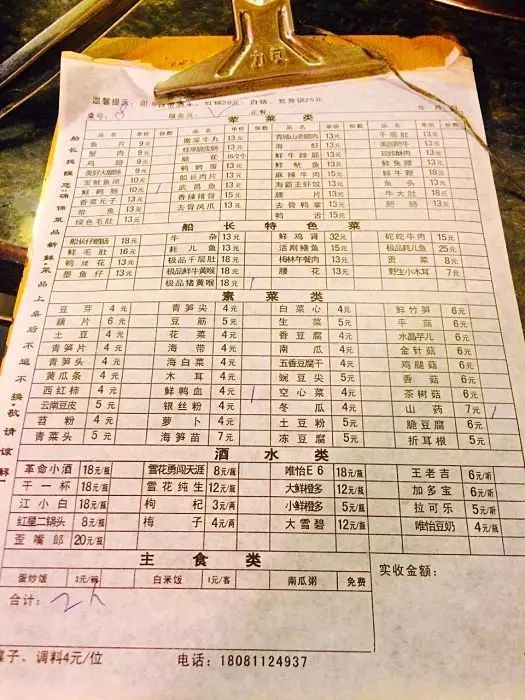 方凤
温馨提示: 红锅20元、白锅、鸳鸯锅25元
桌号: 服务员: 年 月 日
荤菜类
品名 单价 份数 品名 单价 份数 品名 单价 份数 品名 单价 份数
鱼片 9元 撒尿牛丸 13元 青城山老腊肉 13元 千层肚 13元
蟹肉 9元 13元 海虾 13元 13元
鸡翅 9元 脑花 16/2个 鲜牛蹄筋 13元 13元
美好火腿肠 9元 鹌鹑蛋 13元 鲜鱿鱼 13元 鲜鱼腰 13元
发鱿鱼须 10元 船长肉片 13元 麻辣牛肉 15元 鲜牛鞭 18元
鲜鸭肠 10元 武昌鱼 13元 海霸王虾饺 13元 鱼头 13元
香菜元子 13元 香辣猪骨 15元 腰片 13元 牛大肚 18元
带鱼 13元 去骨凤爪 13元 去骨鸭掌 13元 肥肠 13元
绿色毛肚 13元 鸭舌 15元
船长特色菜
船长仔鹅肠 18元 牛杂 13元 鲜鸡肾 32元 砣砣牛肉 15元
鲜毛肚 16元 耗儿鱼 13元 活剐鳝鱼 15元 极品耗儿鱼 25元
鸭绿花 13元 极品千层肚 18元 梅林午餐肉 13元 贡菜 8元
墨鱼仔 13元 极品鲜牛黄喉 18元 腰花 13元 野生小木耳 7元
极品猪黄喉 18元
素菜类
豆芽 4元 青笋尖 4元 白菜心 4元 鲜竹笋 6元
藕片 6元 豆筋 5元 生菜 5元 平菇 6元
土豆 4元 花菜 4元 香豆腐 4元 水晶芋儿 6元
青笋片 4元 海带 4元 南瓜 4元 金针菇 6元
青笋头 4元 海白菜 4元 五香豆腐干 4元 鸡腿菇 6元
黄瓜条 4元 木耳 4元 豌豆尖 5元 香菇 6元
西红柿 4元 鲜鸭血 4元 空心菜 4元 茶树菇 6元
云南豆皮 5元 银丝粉 4元 冬瓜 4元 山药 7元
苕粉 4元 萝卜 4元 土豆粉 5元 脆豆腐 6元
青菜头 5元 海笋苗 7元 冻豆腐 5元 折耳根 5元
酒水类
革命小酒 18元/瓶 雪花勇闯天涯 8元/瓶 唯怡E6 18元/瓶 王老吉 6元/听
干一杯 18元/瓶 雪花纯生 12元/瓶 大鲜橙多 12元/瓶 加多宝 6元/听
江小白 18元/瓶 枸杞 3元/两 小鲜橙多 5元/瓶 拉可乐 5元/听
红星二锅头 8元/瓶 梅子 4元/两 大雪碧 12元/瓶 唯怡豆奶 4元/瓶
歪嘴郎 20元/瓶
主食类
蛋炒饭 白米饭 1元/客 南瓜粥 免费
合计: 实收金额:
碟子、调料4元/位 电话: 18081124937
船长我愿意"确保菜品新鲜"菜品上桌后不退不换"敬请谅解